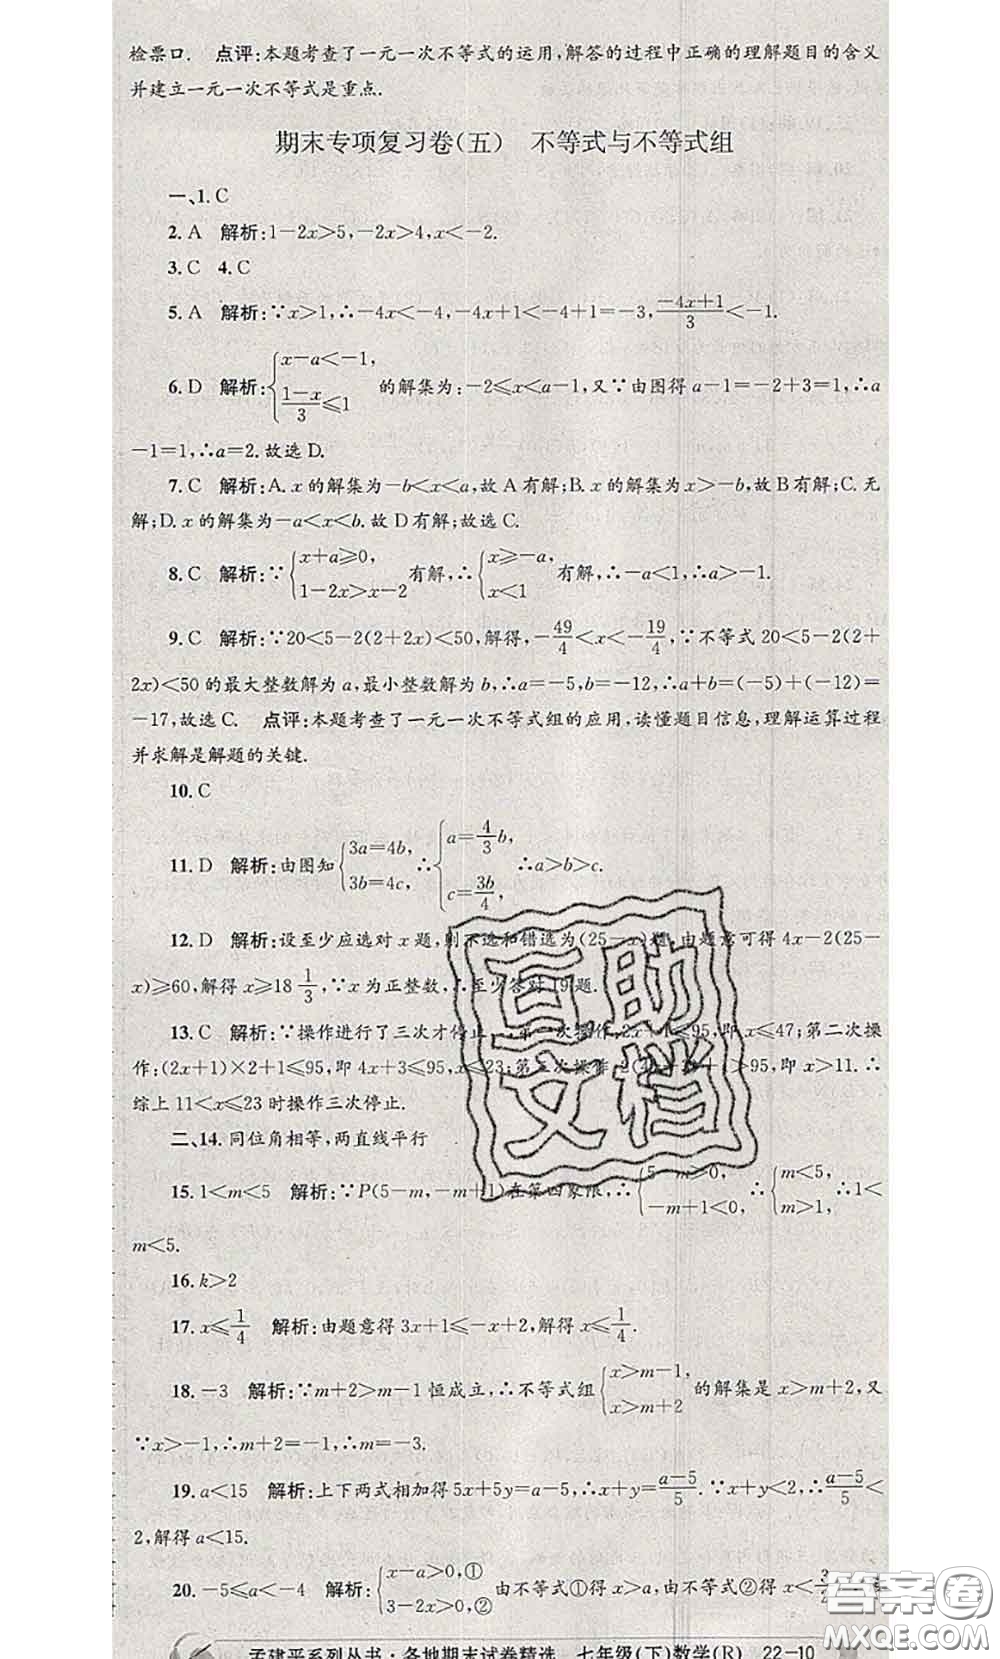 检票口. 点评:本题考查了一元一次不等式的运用,解答的过程中正确的理解题目的含义
并建立一元一次不等式是重点.
期末专项复习卷(五) 不等式与不等式组
一、1. C
2. A 解析:1-2x>5,-2x>4,x<-2.
3. C 4. C
5. A 解析:∵x>1,∴-4x<-4,-4x+1<-4+1=-3,(-4x+1)/3<-1.
6. D 解析:{x-a<-1, (1-x)/3≤1 的解集为:-2≤x<a-1,又∵由图得 a-1=-2+3=1,∴a
-1=1,∴a=2.故选D.
7. C 解析:A. x 的解集为-b<x<a,故 A 有解;B. x 的解集为 x>-b,故 B 有解;C. 无
解;D. x 的解集为-a<x<b.故 D 有解;故选 C.
8. C 解析:∵{x+a≥0, 1-2x>x-2 有解,∴{x≥-a, x<1 有解,∴-a<1,∴a>-1.
9. C 解析:∵20<5-2(2+2x)<50,解得,-49/4<x<-19/4,∵不等式 20<5-2(2+
2x)<50 的最大整数解为 a,最小整数解为 b,∴a=-5,b=-12,∴a+b=(-5)+(-12)=
-17,故选 C. 点评:本题考查了一元一次不等式组的应用,读懂题目信息,理解运算过程
并求解是解题的关键.
10. C
11. D 解析:由图知{3a=4b, 3b=4c, ∴{a=4/3b, c=3b/4, ∴a>b>c.
12. D 解析:设至少应选对 x 题,则不选和错选为(25-x)题,由题意可得 4x-2(25-
x)≥60,解得 x≥18 1/3,∵x 为正整数,∴至少答对 19 题.
13. C 解析:∵操作进行了三次才停止,∴第一次操作,2x+1≤95,即 x≤47;第二次操
作:(2x+1)×2+1≤95,即 4x+3≤95,x≤23;第三次操作:2(4x+3)+1>95,即 x>11. ∴
综上 11<x≤23 时操作三次停止.
二、14. 同位角相等,两直线平行
15. 1<m<5 解析:∵P(5-m,-m+1)在第四象限,∴{5-m>0, -m+1<0, ∴{m<5, m>1, ∴1<
m<5.
16. k>2
17. x≤1/4 解析:由题意得 3x+1≤-x+2,解得 x≤1/4.
18. -3 解析:∵m+2>m-1 恒成立,∴不等式组{x>m-1, x>m+2 的解集是 x>m+2,又
∵x>-1,∴m+2=-1,∴m=-3.
19. a<15 解析:上下两式相加得 5x+5y=a-5,∴x+y=(a-5)/5.∵x+y<2,∴(a-5)/5<
2,解得 a<15.
20. -5≤a<-4 解析:{x-a>0,① 3-2x>0,② 由不等式①得 x>a,由不等式②得 x<
孟建平系列丛书·各地期末试卷精选 七年级(下)数学(R) 22-10
互助
文档
答案圈